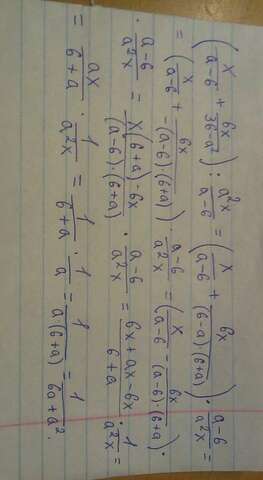 (x/(a-6) + 6x/(36-a²)) : a²x/(a-6) = (x/(a-6) + 6x/((6-a)·(6+a))) · (a-6)/(a²x) =
= (x/(a-6) + 6x/(-(a-6)·(6+a))) · (a-6)/(a²x) = (x/(a-6) - 6x/((a-6)·(6+a))) ·
· (a-6)/(a²x) = (x(6+a)-6x)/((a-6)·(6+a)) · (a-6)/(a²x) = (6x+ax-6x)/(6+a) · 1/(a²x) =
= ax/(6+a) · 1/(a²x) = 1/(6+a) · 1/a = 1/(a·(6+a)) = 1/(6a+a²).